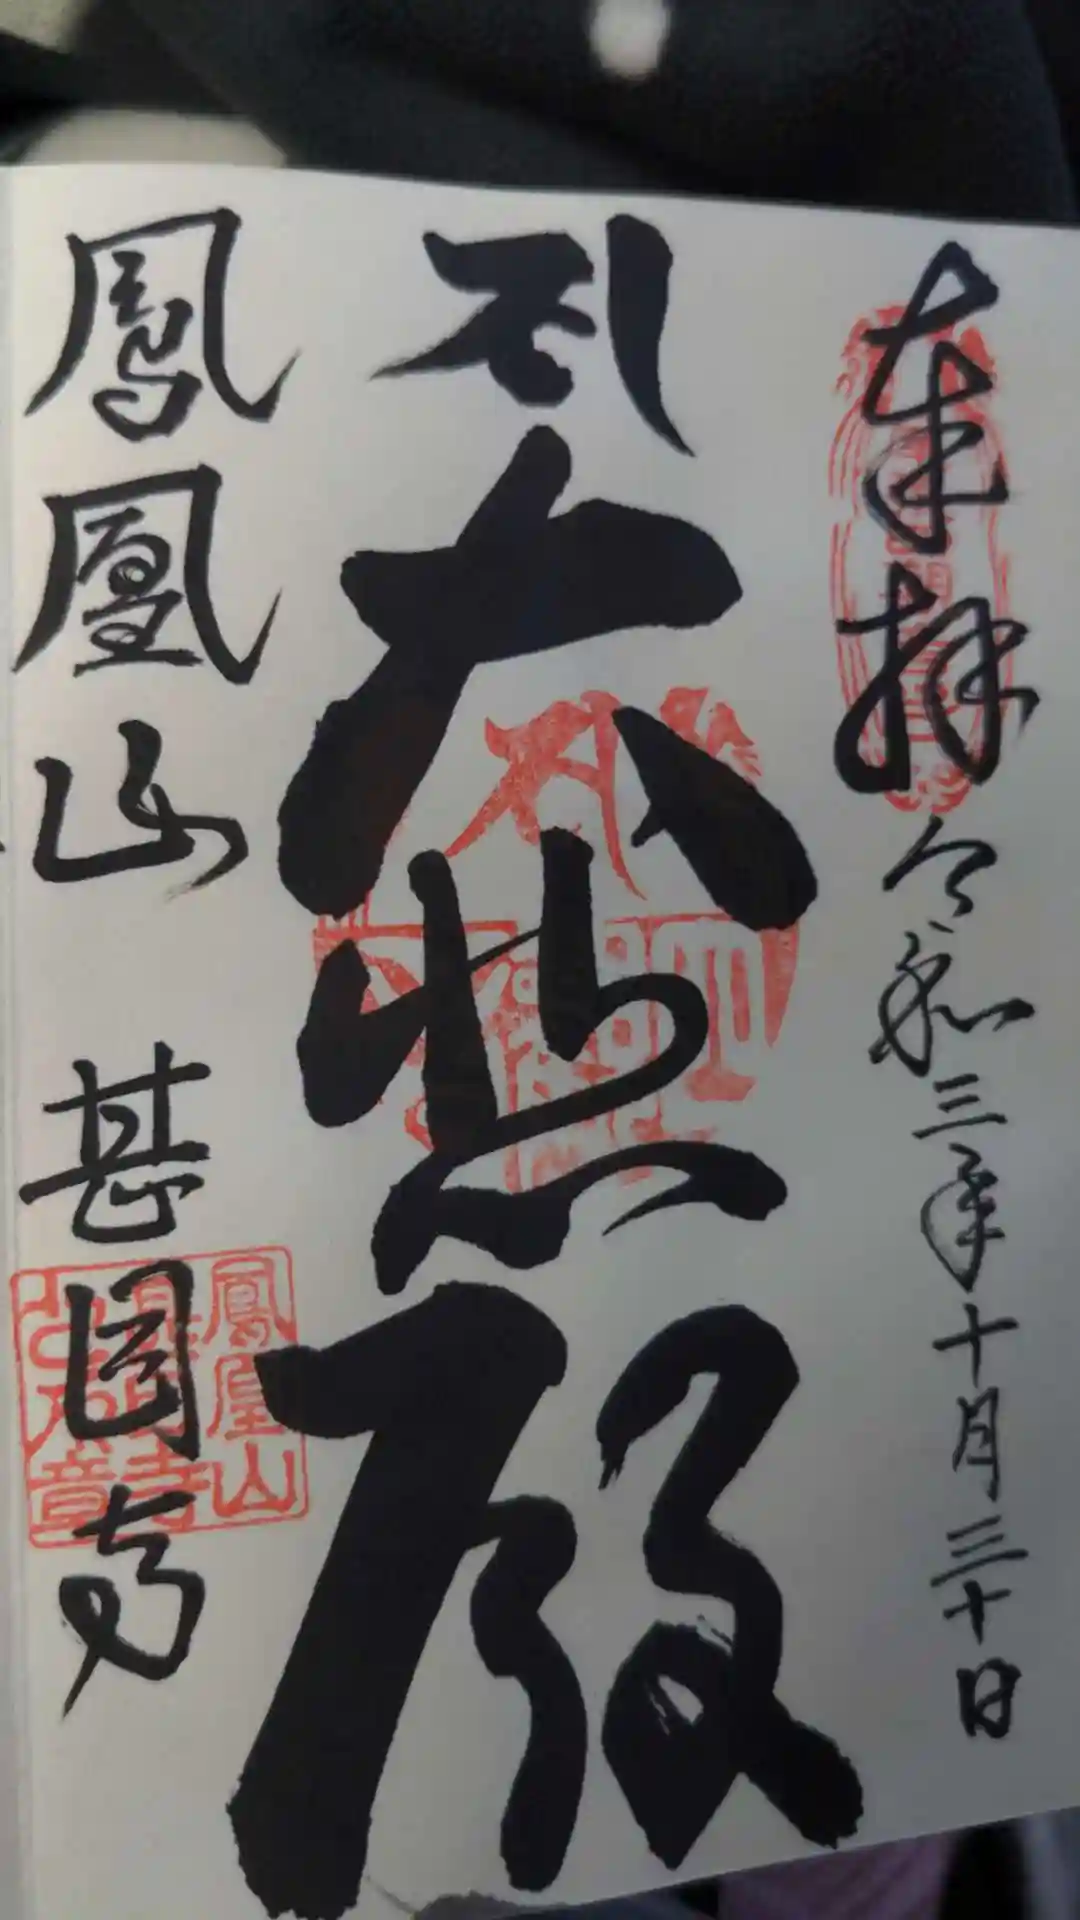 奉拝 令和三年十月三十日
स
大悲殿
鳳凰山 甚目寺
鳳凰山
甚目寺
之印章